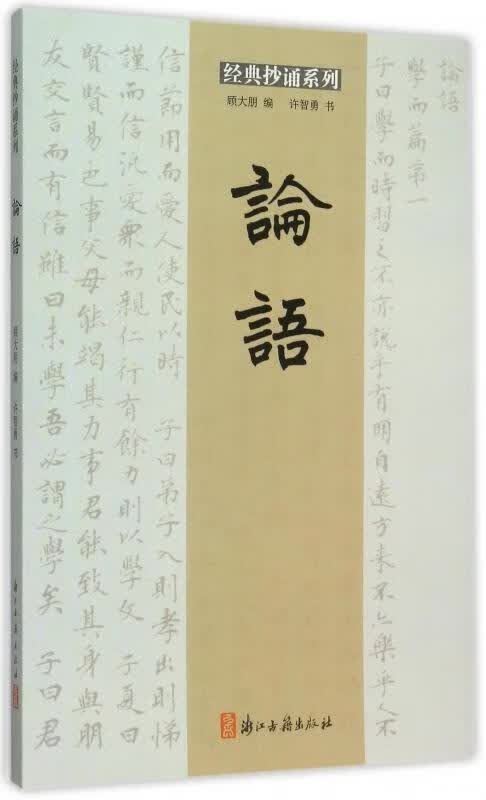 经典抄诵系列
顾大朋 编 许智勇 书
論語
浙江古籍出版社
論語
學而篇第一
子曰學而時習之不亦說乎有朋自遠方来不亦樂乎人不
信節用而愛人使民以時 子曰弟子入則孝出則悌
謹而信汎愛衆而親仁行有餘力則以學文 子夏曰
賢賢易色事父母能竭其力事君能致其身與朋
友交言而有信雖曰未學吾必謂之學矣 子曰君
经典抄诵系列
論語
顾大朋 编 许智勇 书
浙江古籍出版社